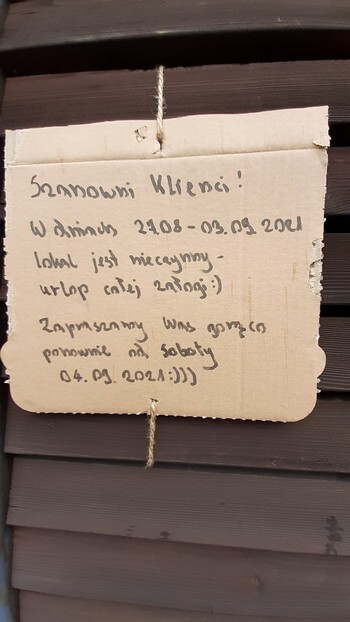 Szanowni Klienci!
W dniach 27.08 - 03.09 2021
lokal jest nieczynny -
urlop całej załogi :)
Zapraszamy Was gorąco
ponownie od soboty
04.09.2021 :)))